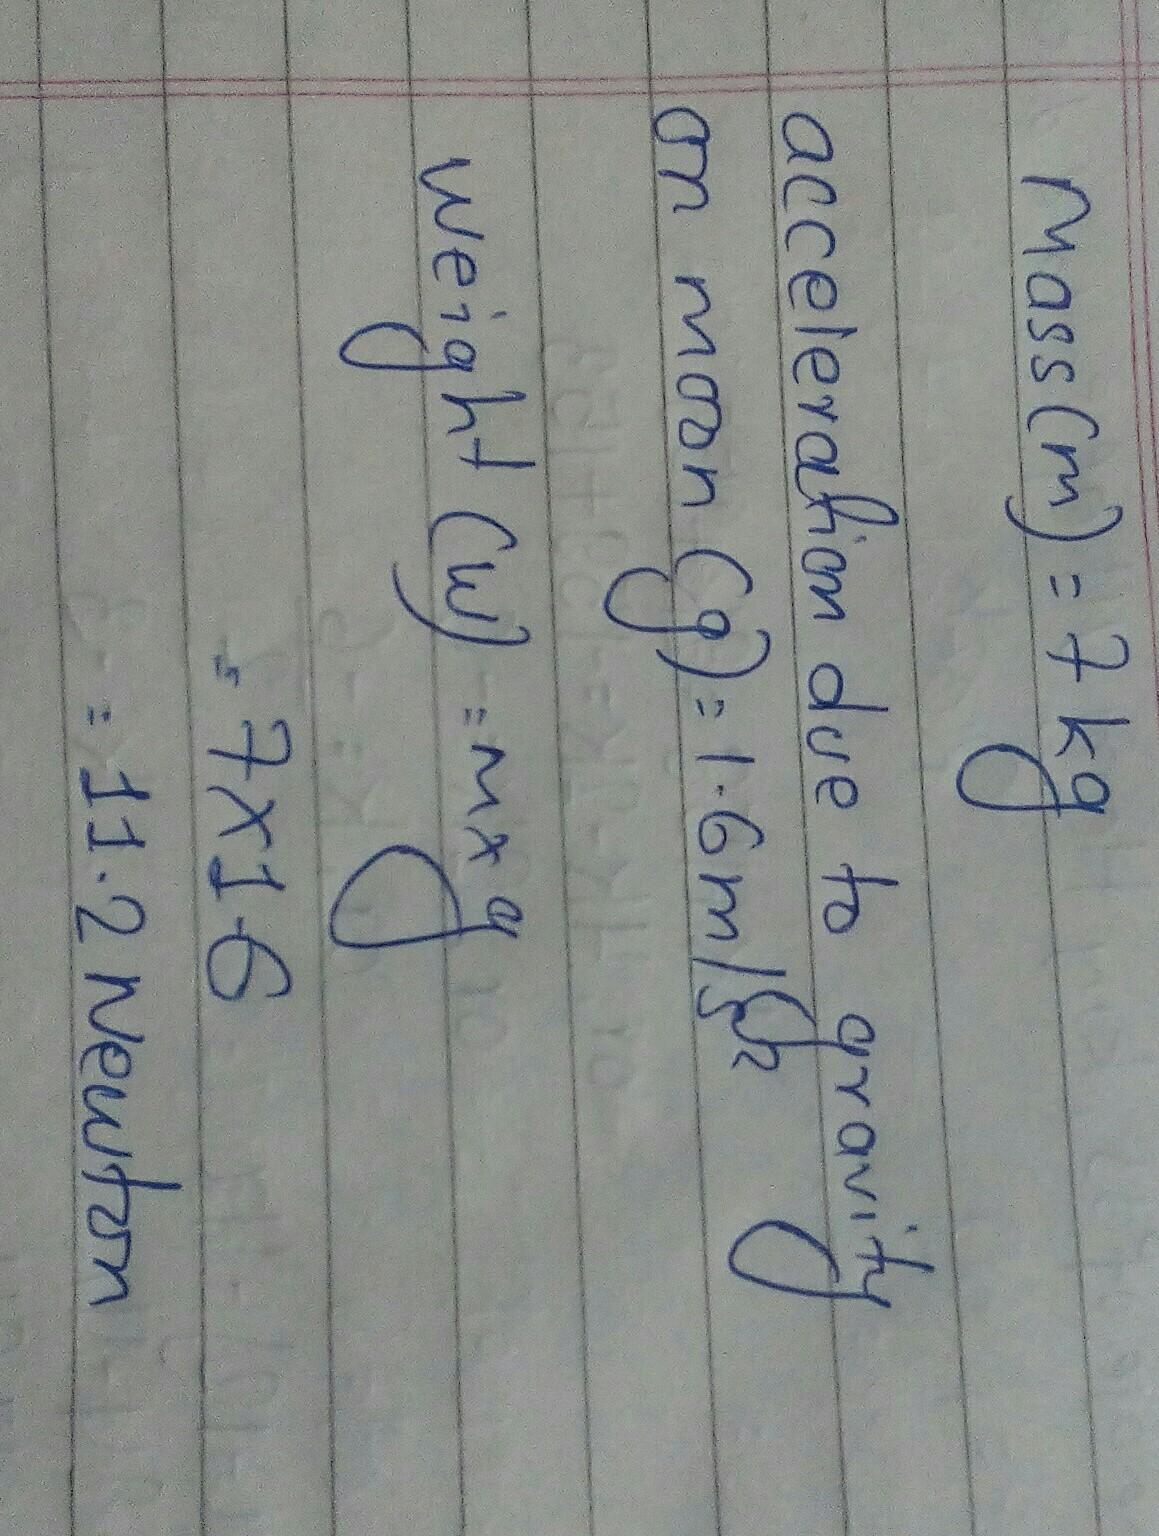 Mass(m) = 7 kg
acceleration due to gravity
on moon (g) = 1.6 m/s2
weight (w) = m x g
= 7x1.6
= 11.2 Newton